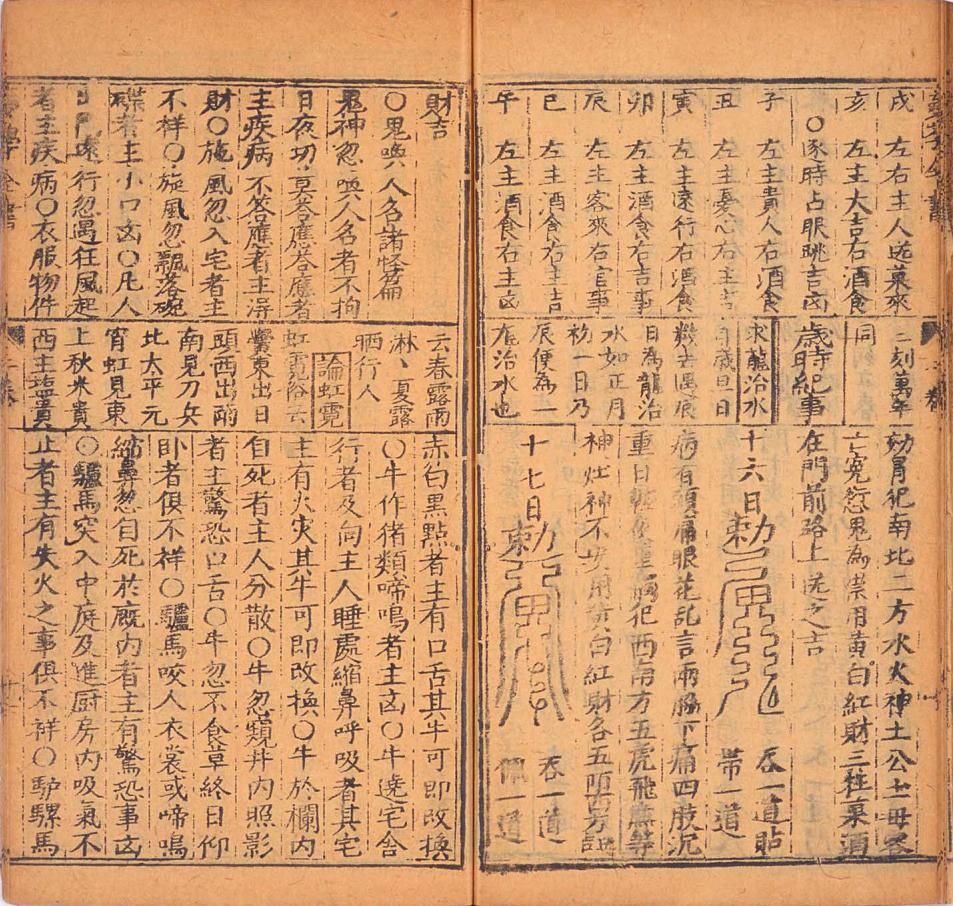 戌　左右主人送菓來
亥　左主大吉右酒食
○逐時占眼跳吉凶
子　左主貴人右酒食
丑　左主憂心右主吉
寅　左主遠行右酒食
卯　左主酒食右吉事
辰　左主客來右官事
巳　左主酒食右主吉
午　左主酒食右主凶
二刻萬年
同
歲時紀事
求龍治水
歲旦日
數去遇辰
日為龍治
水如正月
初一日乃
辰便為一
龍治水也
幼冒犯南北二方水火神土公土母客
亡寃愆鬼為祟用黄白紅財三柱菓酒
在門前路上送之吉
十六日　勅　吞一道貼
帶一道
病有頭痛眼花乱言兩脇下痛四肢沉
重日輕夜重病犯西南方五虎飛廉等
神灶神不安用黄白紅財各五陌西方送
十七日　勅　吞一道
佩一道
財吉
○鬼喚人名諸怪篇
鬼神忽喚人名者不拘
日夜切莫荅應荅應者
主疾病不荅應者主得
財○施風忽入宅者主
不祥○旋風忽飄落碗
碟者主小口凶○凡人
出門遠行忽遇狂風起
者主疾病○衣服物件
云春露雨
淋夏露
晒行人
論虹霓
虹霓俗云
鱟東出日
頭西出雨
南見刀兵
北太平元
宵虹見東
上秋米貴
西主塩貴
赤白黒點者主有口舌其牛可即改換
○牛作猪類啼鳴者主凶○牛遶宅舍
行者及向主人睡處縮鼻呼吸者其宅
主有火灾其牛可即改換○牛於欄内
自死者主人分散○牛忽窺井内照影
者主驚恐口舌○牛忽不食草終日仰
卧者俱不祥○驢馬咬人衣裳或啼鳴
縮鼻忽自死於廐内者主有驚恐事凶
○驢馬突入中庭及進厨房内吸氣不
止者主有失火之事俱不祥○馿騾馬